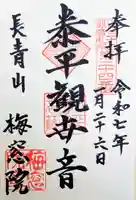 奉拝
令和七年
一月二十六日
泰平観世音
長青山
梅窓院